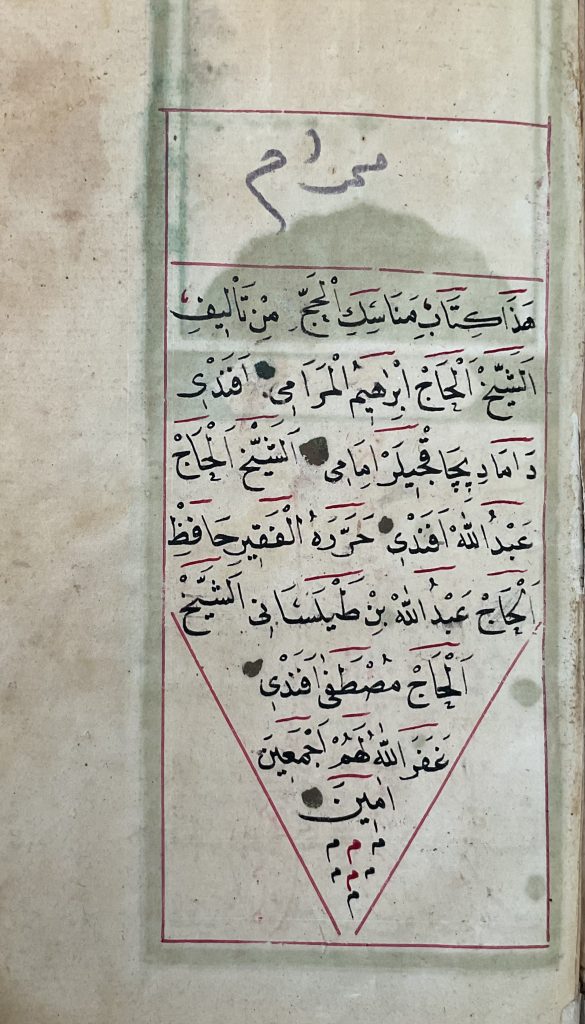 هَذَا كِتَابُ مَنَاسِكِ الْحَجِّ مِنْ تَأْلِيفِ
اَلشَّيْخْ اَلْحَاجْ اِبْرٰهِيمُ الْمَرَامِى اَفَنْدْى
دَامَادِ بِچَاقْجِيلَرْ اِمَامِى اَلشَّيْخْ اَلْحَاجْ
عَبْدُ اللّٰهْ اَفَنْدْى حَرَّرَهُ الْفَقِيرْ حَافِظْ
اَلْحَاجْ عَبْدُ اللّٰهْ بِنْ طَيْلَسَانِى اَلشَّيْخْ
اَلْحَاجْ مُصْطَفٰى اَفَنْدْى
غَفَرَ اللّٰهُ لَهُمْ اَجْمَعِينَ
اٰمِينَ